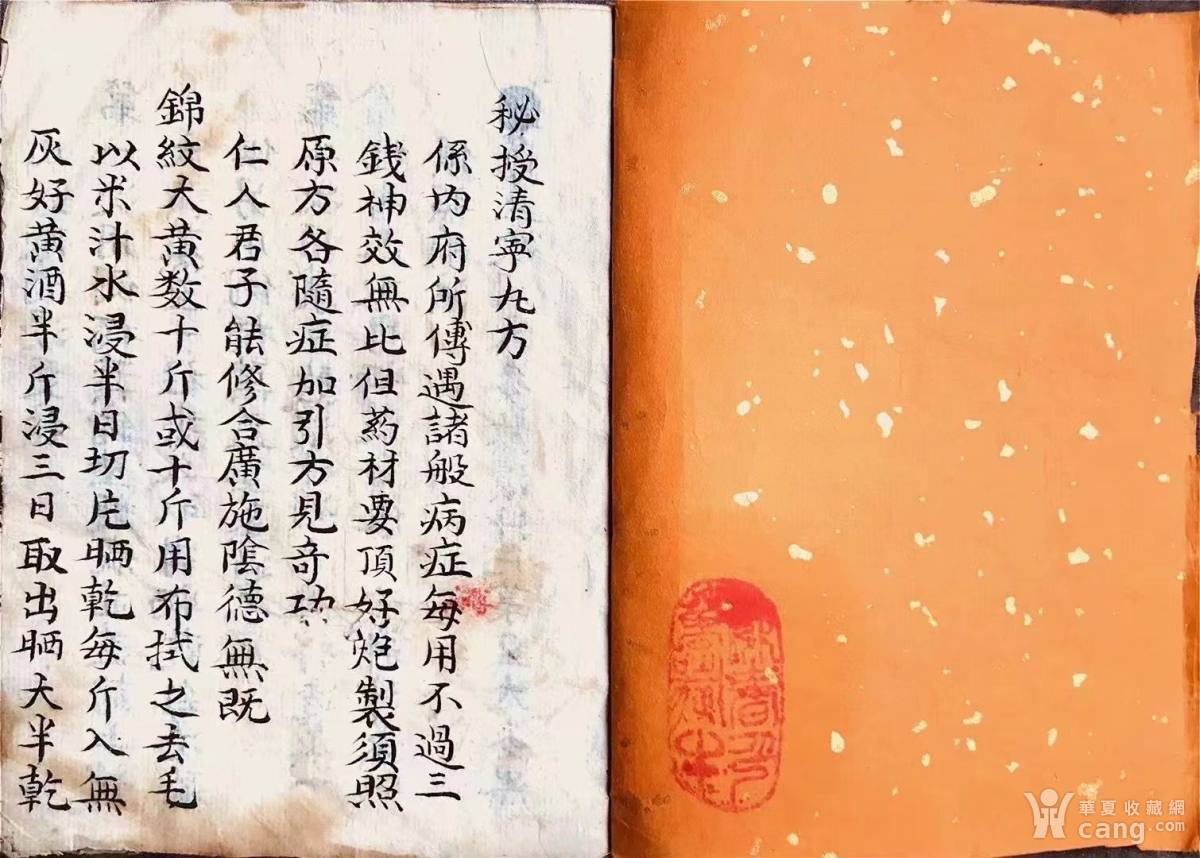 秘授清寧丸方
係內府所傳遇諸般病症每用不過三
錢神效無比但葯材要頂好炮製須照
原方各隨症加引方見奇功
仁人君子能修合廣施陰德無既
錦紋大黃数十斤或十斤用布拭之去毛
以米汁水浸半日切片晒乾每斤入無
灰好黃酒半斤浸三日取出晒大半乾
華夏收藏網
cang.com